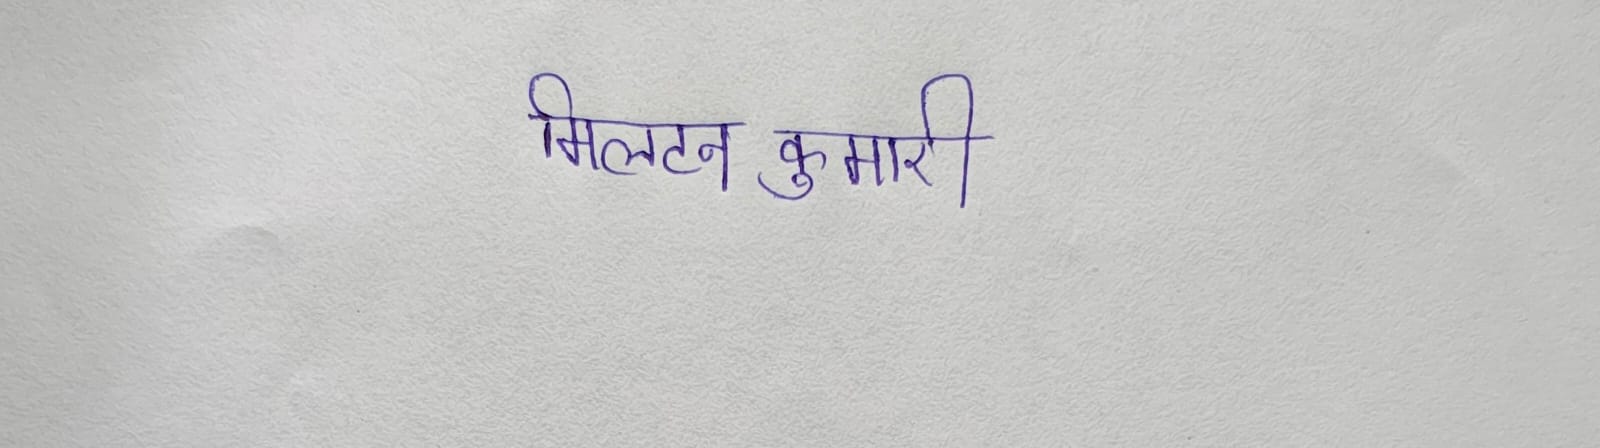 मिलटन कुमारी